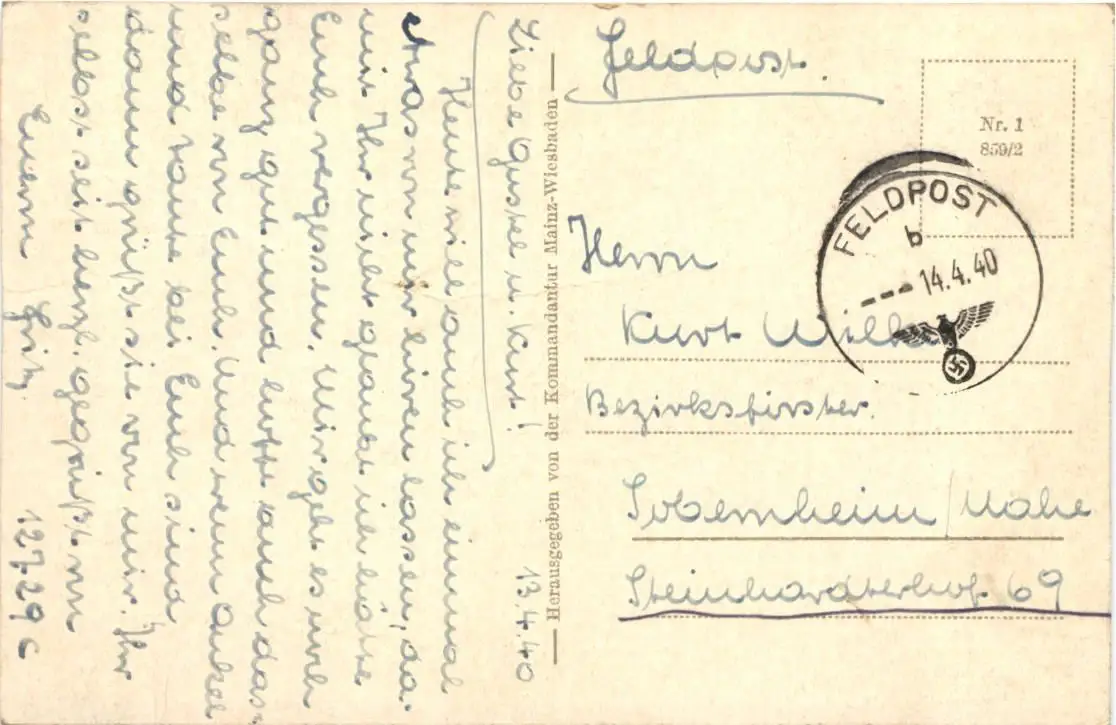 Feldpost.
Nr. 1
859/2
FELDPOST
b
---14.4.40
Herrn
Kurt
Bezirksförster.
Sobernheim / Nahe
Steinhardterhof 69
Herausgegeben von der Kommandantur Mainz-Wiesbaden
13.4.40
Liebe Gustel u. Kurt!
Heute will auch ich einmal
etwas von mir hören lassen, da-
mit Ihr nicht glaubt ich hätte
Euch vergessen. Mir geht es noch
ganz gut und hoffe auch das-
selbe von Euch. Und wenn
und Tante bei Euch sind
dann grüßt sie von mir. Ihr
selbst seit herzl. gegrüßt von
Euerm Fritz
12729 C